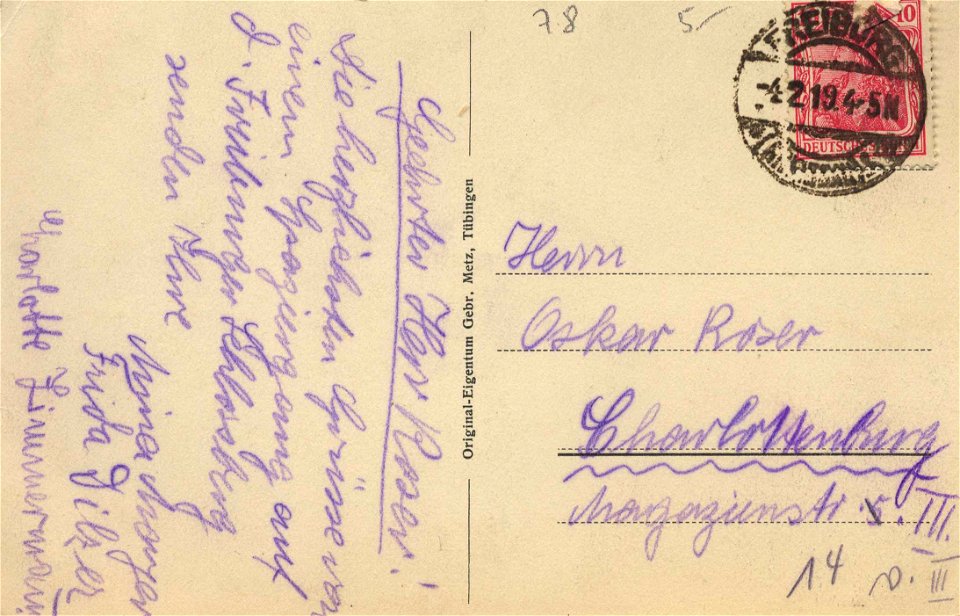 78
5-
10
FREIBURG
-4.2.19.4-5N
DEUTSCHES
Geehrter Herr Roser!
Die herzlichsten Grüsse von
einem Spaziergang auf
d. Freiburger Schlossberg
senden Ihre
Mina
Frida Filzer
Charlotte Zimmermann
Original-Eigentum Gebr. Metz, Tübingen
Herrn
Oskar Roser
Charlottenburg
Magazienstr. 5. III.
14 v. III